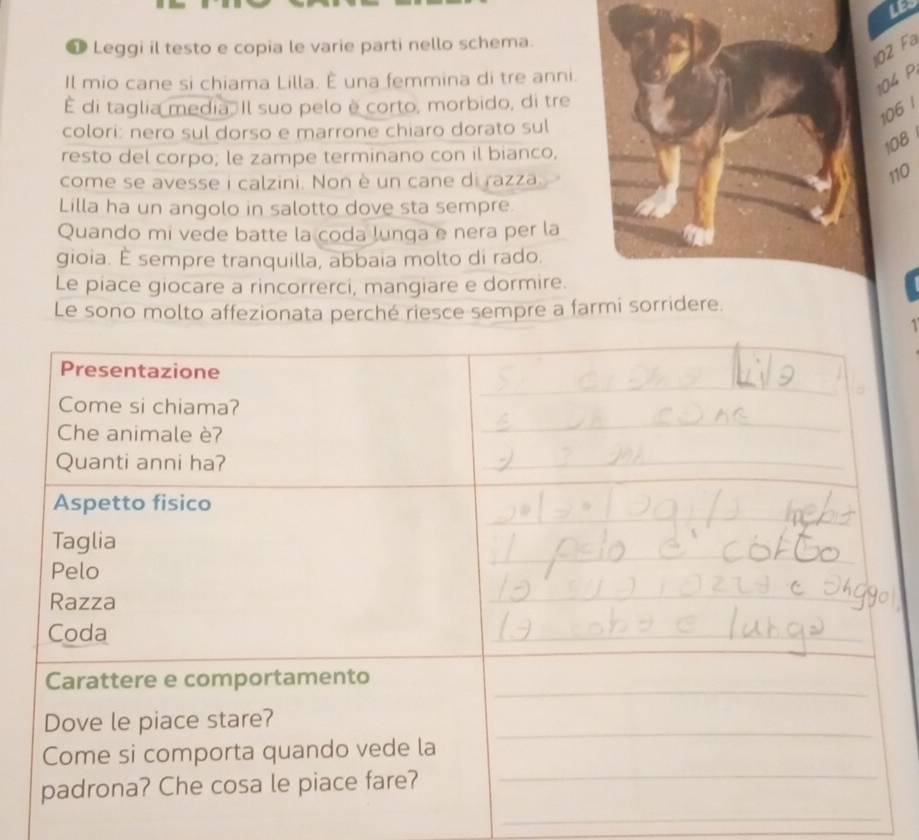 LES
102 Fa
104 P
106 i
108
110
1 Leggi il testo e copia le varie parti nello schema.
Il mio cane si chiama Lilla. È una femmina di tre anni.
È di taglia media. Il suo pelo è corto, morbido, di tre
colori: nero sul dorso e marrone chiaro dorato sul
resto del corpo; le zampe terminano con il bianco,
come se avesse i calzini. Non è un cane di razza.
Lilla ha un angolo in salotto dove sta sempre.
Quando mi vede batte la coda lunga e nera per la
gioia. È sempre tranquilla, abbaia molto di rado.
Le piace giocare a rincorrerci, mangiare e dormire.
Le sono molto affezionata perché riesce sempre a farmi sorridere.
Presentazione
Come si chiama?
Che animale è?
Quanti anni ha?
Aspetto fisico
Taglia
Pelo
Razza
Coda
il pelo e' corto
la e lunga
Carattere e comportamento
Dove le piace stare?
Come si comporta quando vede la
padrona? Che cosa le piace fare?